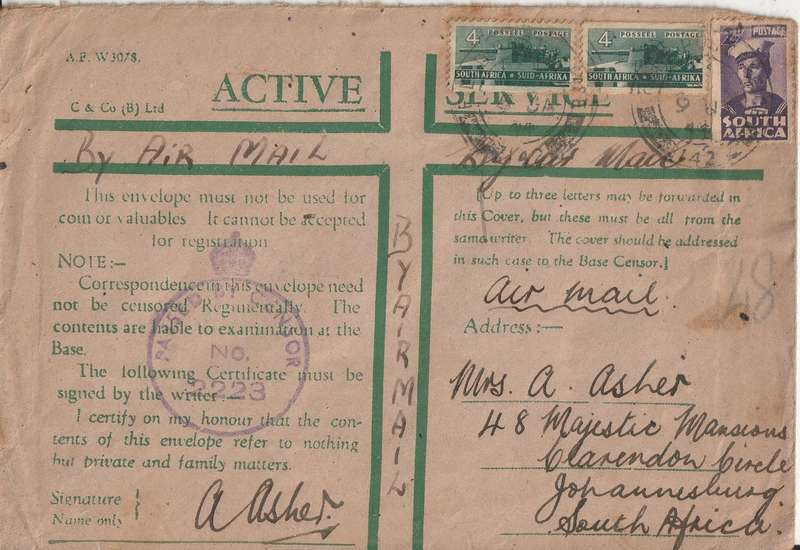 A.F. W3078.
C & Co (B) Ltd
ACTIVE SERVICE
4 POSSEEL POSTAGE
SOUTH AFRICA · SUID-AFRIKA
4 POSSEEL POSTAGE
SOUTH AFRICA · SUID-AFRIKA
POSTAGE
SOUTH AFRICA
42
By AIR MAIL
This envelope must not be used for
coin or valuables It cannot be accepted
for registration
NOTE:—
Correspondence in this envelope need
not be censored Regimentally. The
contents are liable to examination at the
Base.
The following Certificate must be
signed by the writer
I certify on my honour that the con-
tents of this envelope refer to nothing
but private and family matters.
Signature
Name only
A Asher.
PASSED BY CENSOR
No.
2223
BY AIR MAIL
[Up to three letters may be forwarded in
this Cover, but these must be all from the
same writer. The cover should be addressed
in such case to the Base Censor.]
Air mail.
48
Address:—
Mrs. A. Asher
48 Majestic Mansions
Clarendon Circle
Johannesburg
South Africa.